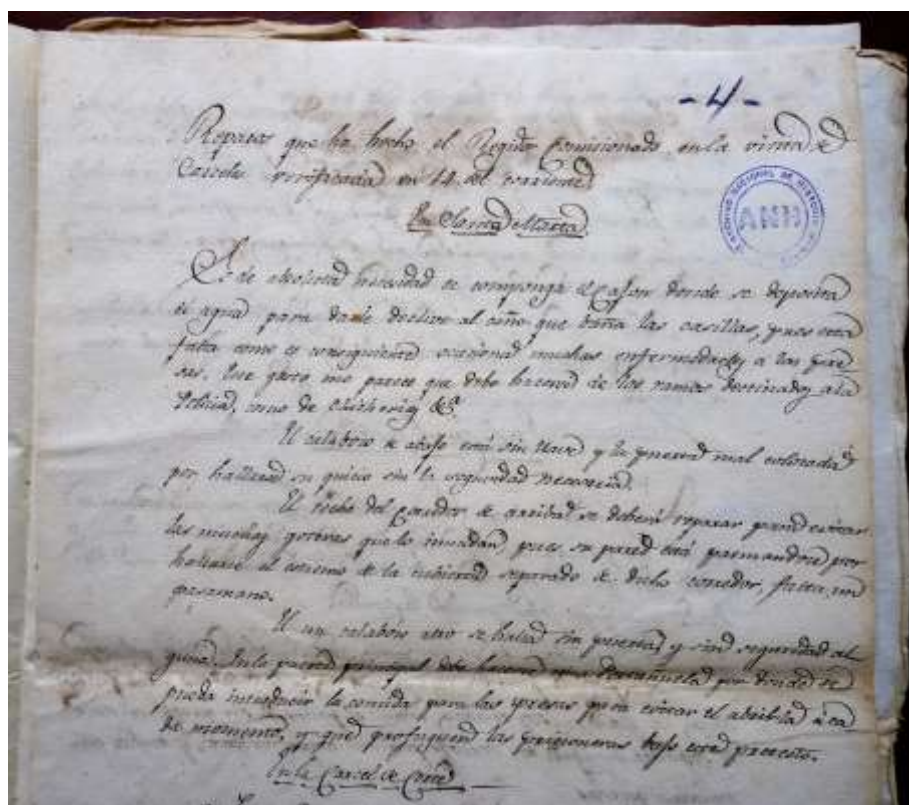 - 4 -
Reparos que ha hecho el Regidor Comicionado en la vicita de
Carceles verificada en 14. del corriente
En Santa Marta
ARCHIVO NACIONAL DE HISTORIA
ANH
Es de absoluta necesidad se componga el Cajon donde se deposita
el agua para darle declive al caño que baña las casillas, pues esta
falta como es consiguiente ocasiona muchas enfermedades a las pre
sas. Este gasto me parece que debe hacerse de los ramos destinados a la
Policia, como de Chicherias &a.
El calabozo de abajo está sin llave y la puerta mal colocada
por hallarse su quicio sin la seguridad necesaria.
El techo del Corredor de arriba se deberá reparar para evitar
las muchas goteras que lo inundan pues su pared está por
hallarse el estremo de la cubierta separado de dicho corredor, falta un
pasamano.
El un calabozo se halla sin puerta, y sin seguridad al
guna. En la puerta principal debe hacerse una por donde se
pueda introducir la comida para las presas para evitar el abrirla á ca
da momento, y que profuguen las pricioneras bajo este pretexto.
En la Carcel de Corte